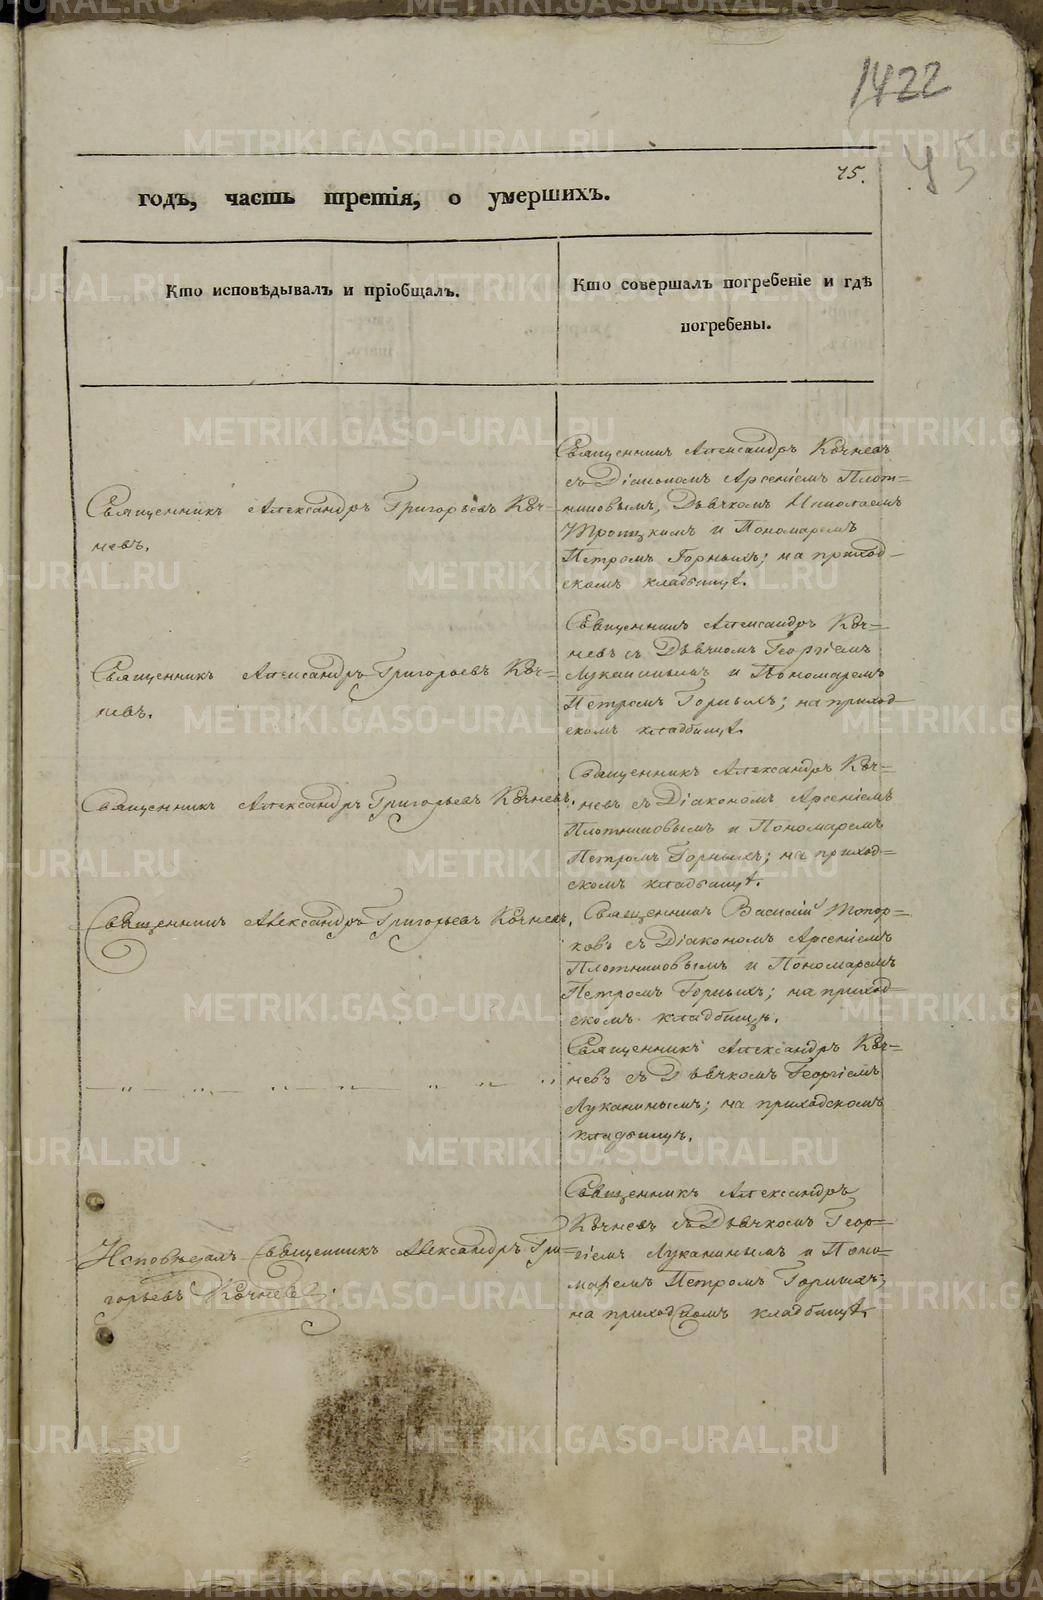 1422
45
75.
годъ, часть третія, о умершихъ.
Кто исповѣдывалъ и пріобщалъ.
Кто совершалъ погребеніе и гдѣ
погребены.
Священникъ Александръ Григорьевъ Кѣч=
невъ.
Священникъ Александръ Кѣчневъ
съ Діакономъ Арсеніемъ Плот=
никовымъ, Дьячкомъ Николаемъ
Троицкимъ и Пономаремъ
Петромъ Горныхъ; на приход-
скомъ кладбищѣ.
Священникъ Александръ Григорьевъ Кѣч=
невъ.
Священникъ Александръ Кѣч=
невъ съ Дьячкомъ Георгіемъ
Луканинымъ и Пономаремъ
Петромъ Горныхъ; на приход-
скомъ кладбищѣ.
Священникъ Александръ Григорьевъ Кѣчневъ.
Священникъ Александръ Кѣч=
невъ съ Діакономъ Арсеніемъ
Плотниковымъ и Пономаремъ
Петромъ Горныхъ; на приход=
скомъ кладбищѣ.
Священникъ Александръ Григорьевъ Кѣчневъ.
Священникъ Василій Топор=
ковъ съ Діакономъ Арсеніемъ
Плотниковымъ и Пономаремъ
Петромъ Горныхъ; на приход=
скомъ кладбищѣ.
— „ „ „ „ „ „ „
Священникъ Александръ Кѣч=
невъ съ Дьячкомъ Георгіемъ
Луканинымъ; на приходскомъ
кладбищѣ.
Исповѣдалъ Священникъ Александръ Гри=
горьевъ Кѣчневъ.
Священникъ Александръ
Кѣчневъ съ Дьячкомъ Геор=
гіемъ Луканинымъ и Поно=
маремъ Петромъ Горныхъ;
на приходскомъ кладбищѣ.
METRIKI.GASO-URAL.RU